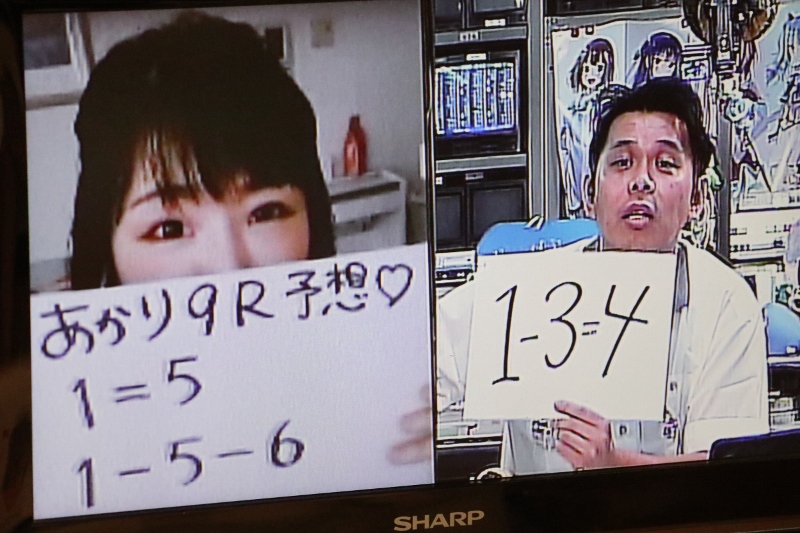 あかり9R予想♡
1=5
1-5-6
1-3=4
SHARP